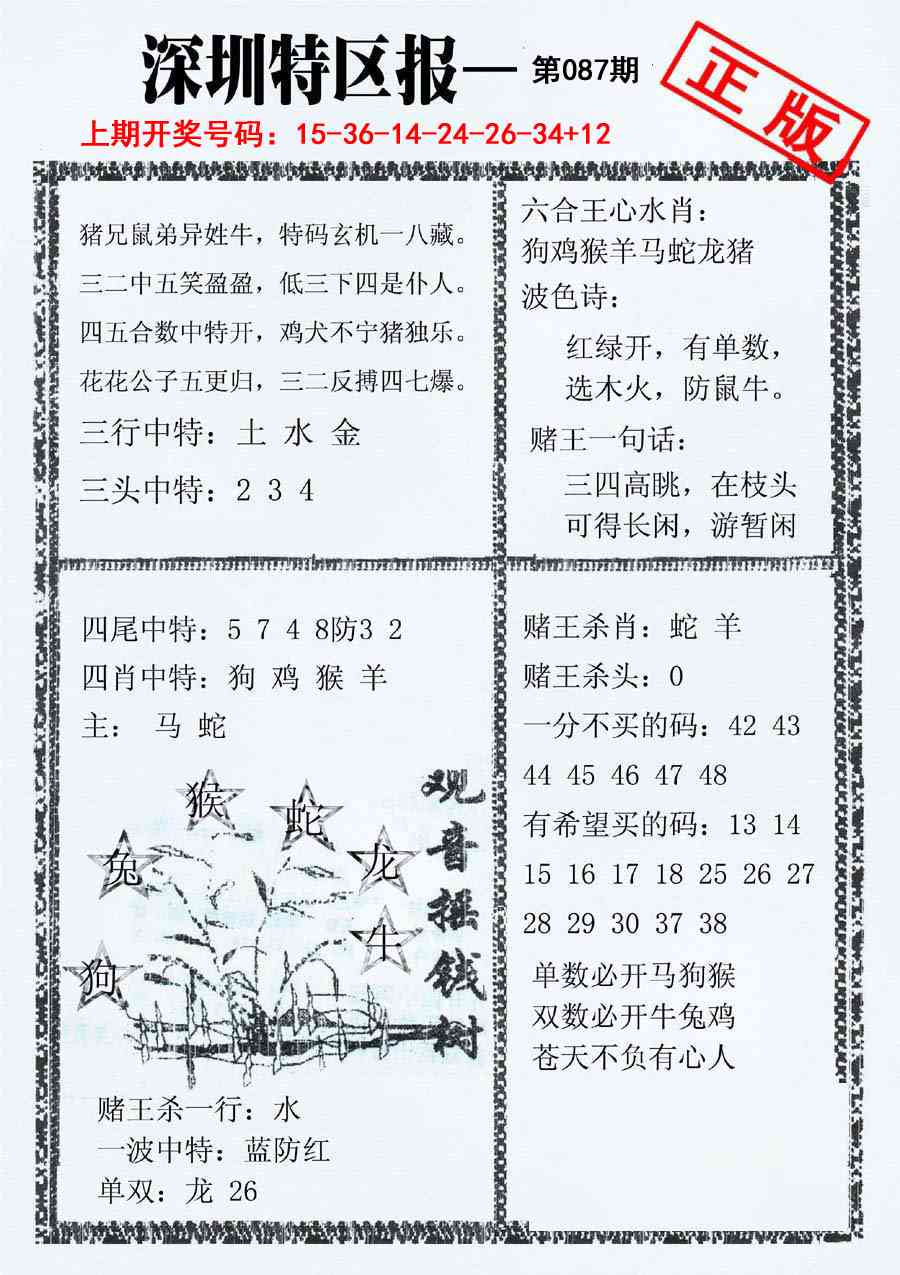 深圳特区报— 第087期
正版
上期开奖号码：15-36-14-24-26-34+12
猪兄鼠弟异姓牛，特码玄机一八藏。
三二中五笑盈盈，低三下四是仆人。
四五合数中特开，鸡犬不宁猪独乐。
花花公子五更归，三二反搏四七爆。
三行中特：土 水 金
三头中特：2 3 4
六合王心水肖：
狗鸡猴羊马蛇龙猪
波色诗：
红绿开，有单数，
选木火，防鼠牛。
赌王一句话：
三四高眺，在枝头
可得长闲，游暂闲
四尾中特：5 7 4 8防3 2
四肖中特：狗 鸡 猴 羊
主： 马 蛇
猴
蛇
兔
龙
牛
狗
观音摇钱树
赌王杀一行：水
一波中特：蓝防红
单双：龙 26
赌王杀肖：蛇 羊
赌王杀头：0
一分不买的码：42 43
44 45 46 47 48
有希望买的码：13 14
15 16 17 18 25 26 27
28 29 30 37 38
单数必开马狗猴
双数必开牛兔鸡
苍天不负有心人